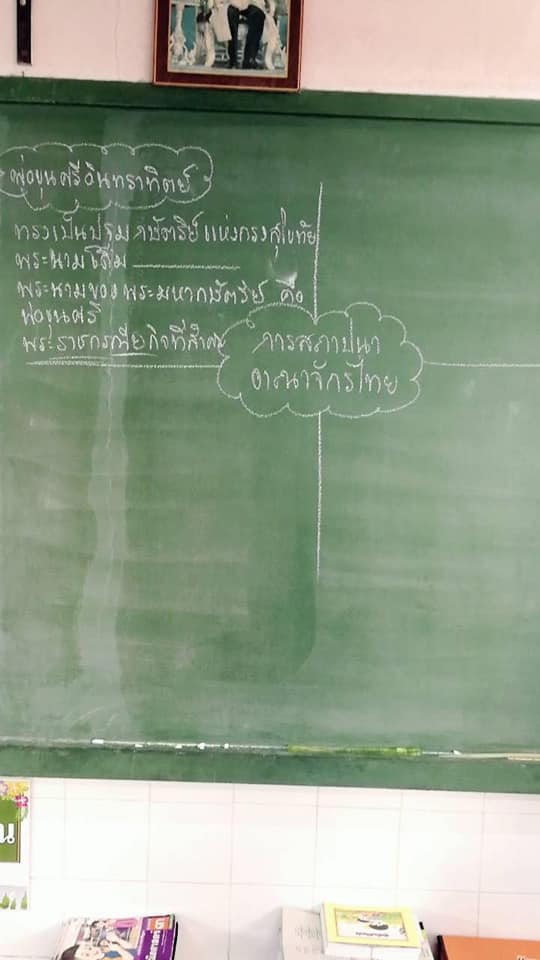 พ่อขุนศรีอินทราทิตย์
ทรงเป็นปฐมกษัตริย์แห่งกรุงสุโขทัย
พระนามเดิม
พระนามของพระมหากษัตริย์ คือ
พ่อขุนศรี
พระราชกรณียกิจที่สำคัญ
การสถาปนา
อาณาจักรไทย
น